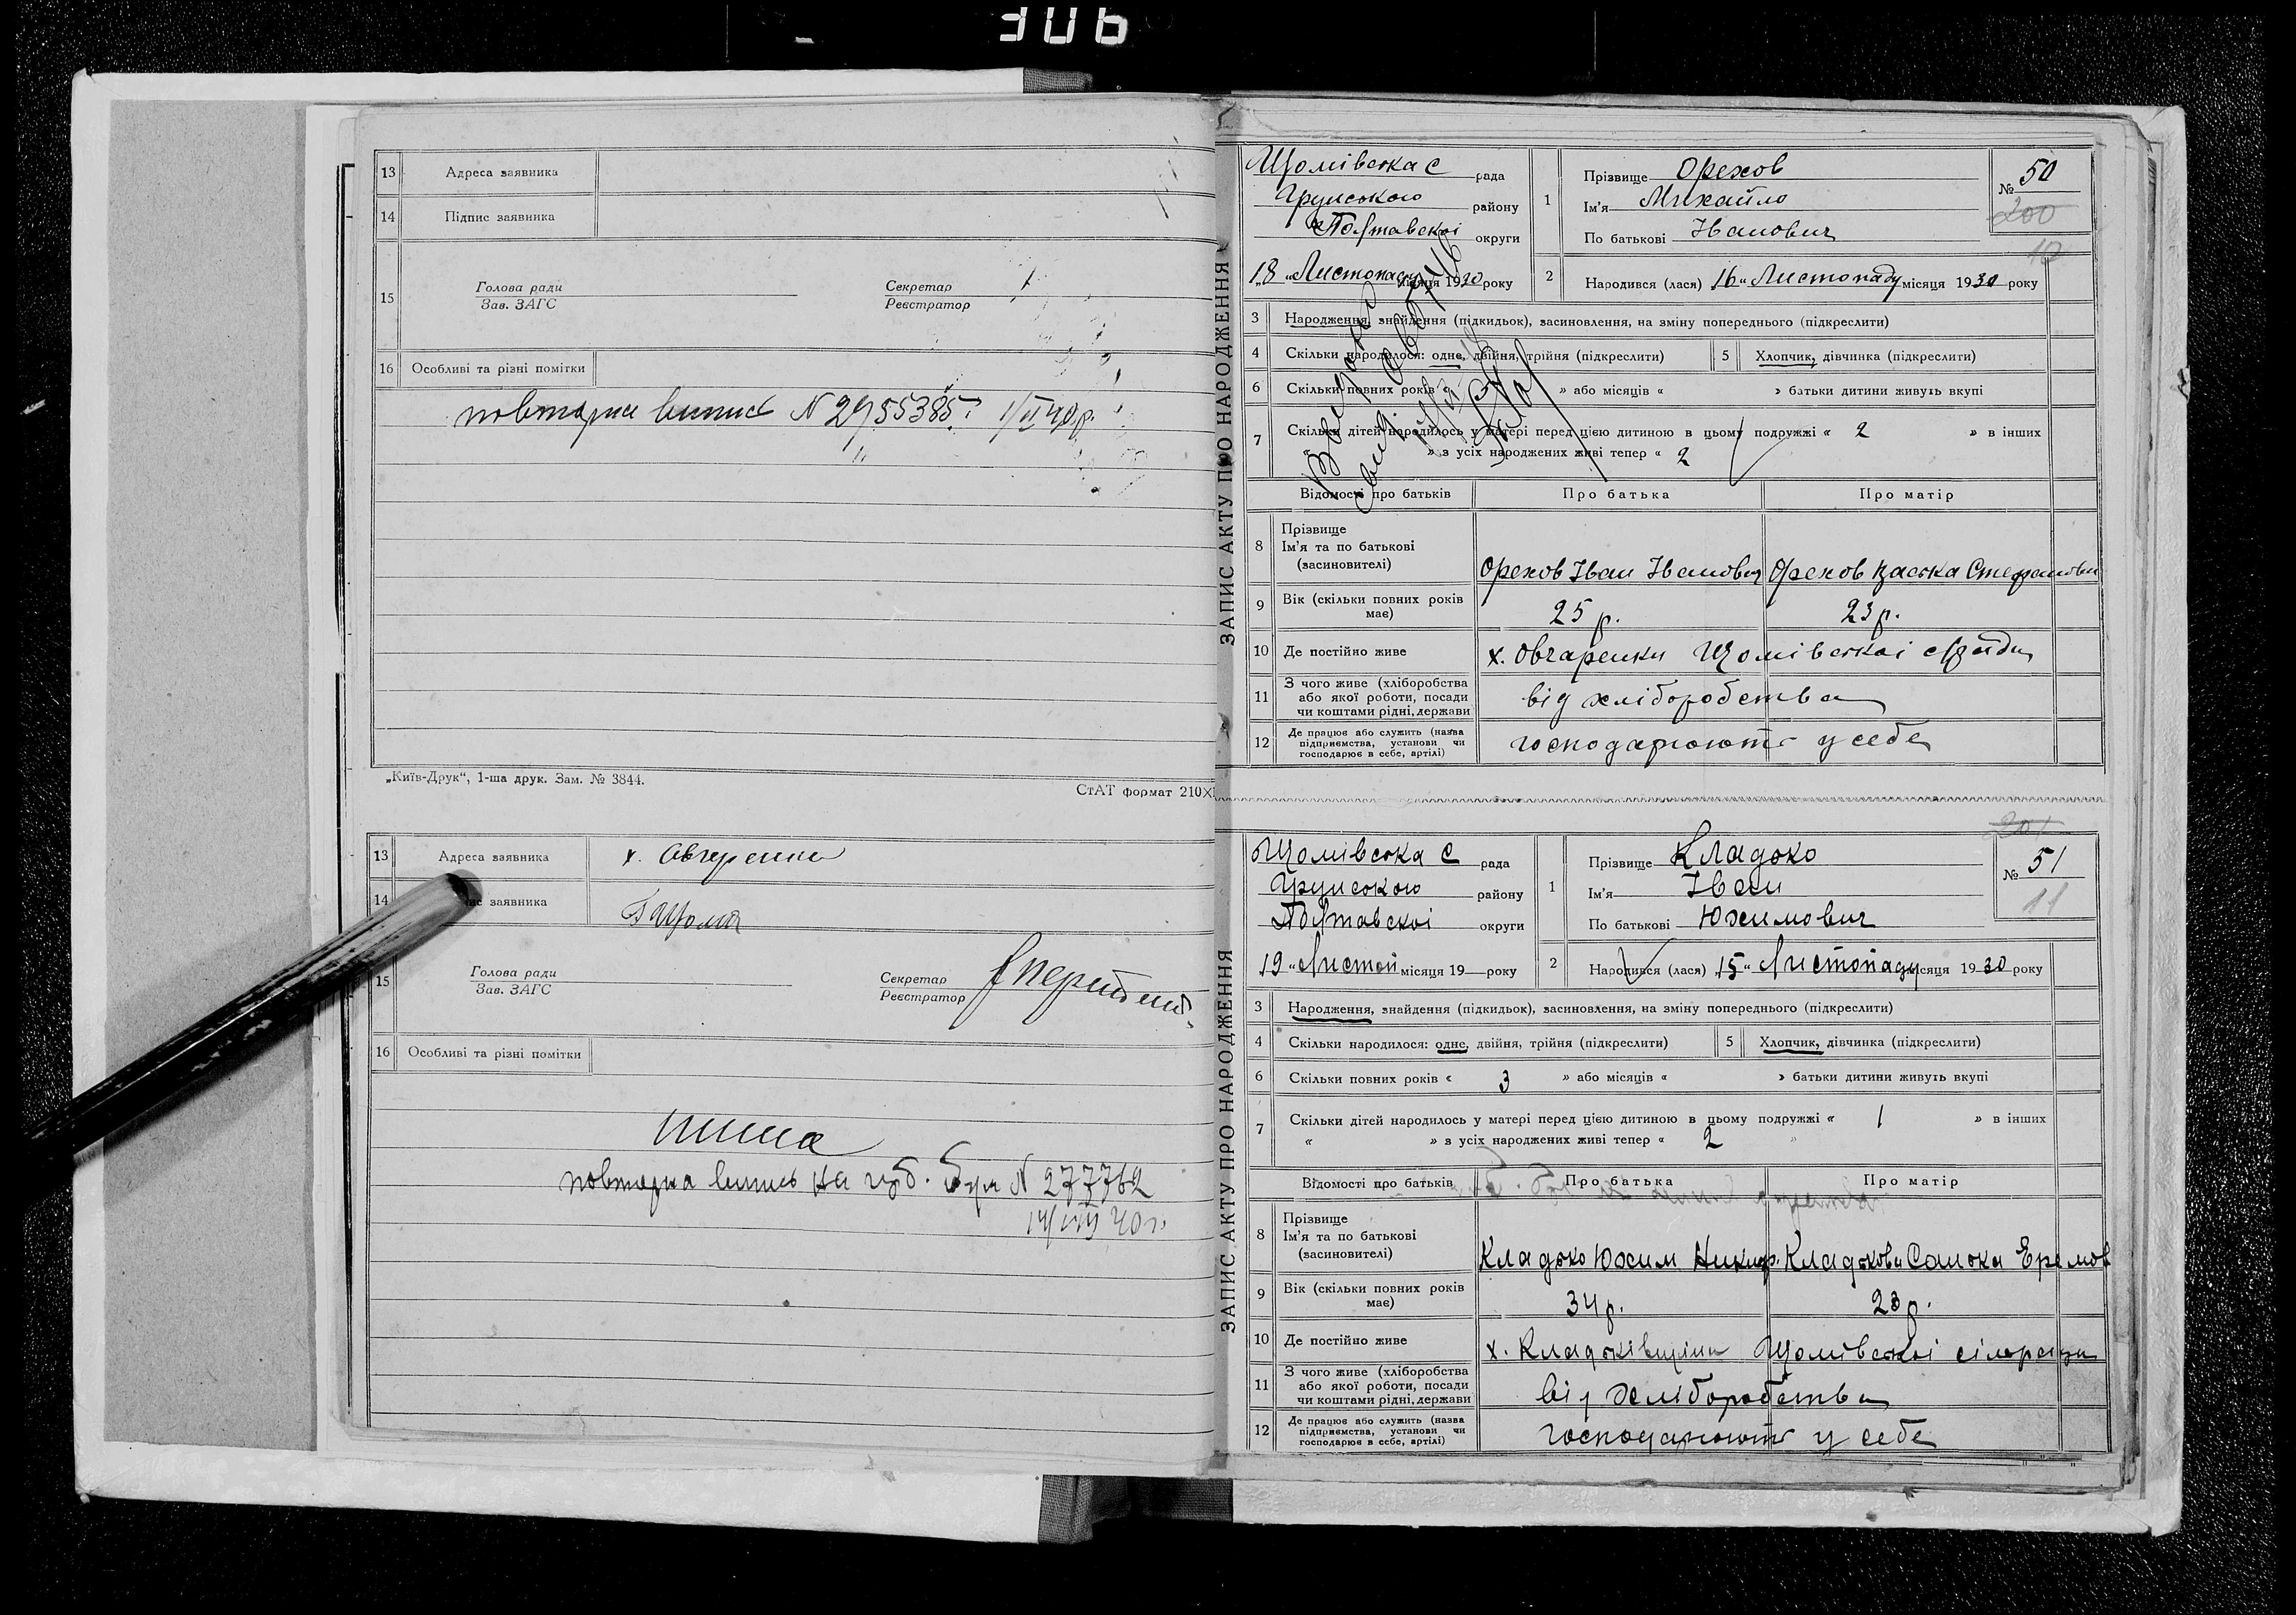 306
13 Адреса заявника
14 Підпис заявника
15 Голова ради
Зав. ЗАГС
Секретар
Реєстратор
16 Особливі та різні помітки
повторна випись N 2955385 1/II 40 р.
„Київ-Друк“, 1-ша друк. Зам. № 3844.
СтАТ формат 210X
13 Адреса заявника х. Овчаренки
14 заявника
15 Голова ради
Зав. ЗАГС
Секретар
Реєстратор
16 Особливі та різні помітки
повторна випись на N 277762
14/VIII 40 г.
ЗАПИС АКТУ ПРО НАРОДЖЕННЯ
Щомівська с рада
Грунського району
Полтавскоі округи
18 „ Листопаду місяця 1930 року
1 Прізвище Орехов
Ім'я Михайло
По батькові Іванович
№ 50
200
10
2 Народився (лася) 16 „ Листопаду місяця 1930 року
3 Народження, знайдення (підкидьок), засиновлення, на зміну попереднього (підкреслити)
4 Скільки народилося: одне, двійня, трійня (підкреслити) 5 Хлопчик, дівчинка (підкреслити)
6 Скільки повних років « » або місяців « » батьки дитини живуть вкупі
7 Скільки дітей народилось у матері перед цією дитиною в цьому подружжі « 2 » в інших
« » з усіх народжених живі тепер « 2
Відомості про батьків Про батька Про матір
8 Прізвище
Ім'я та по батькові
(засиновителі)
Орехов Іван Іванович Орехов Васька Степановн
9 Вік (скільки повних років має) 25 р. 23 р.
10 Де постійно живе х. Овчаренки Щомівськоі с/ради
11 З чого живе (хліборобства
або якої роботи, посади
чи коштами рідні, держави
від хліборобства
12 Де працює або служить (назва
підприємства, установи чи
господарює в себе, артілі)
господарюють у себе
ЗАПИС АКТУ ПРО НАРОДЖЕННЯ
Щомівська с рада
Грунського району
Полтавскоі округи
19 „ Листоп місяця 19 року
1 Прізвище Кладько
Ім'я Іван
По батькові Юхимович
201
№ 51
11
2 Народився (лася) 15 „ Листопаду місяця 1930 року
3 Народження, знайдення (підкидьок), засиновлення, на зміну попереднього (підкреслити)
4 Скільки народилося: одне, двійня, трійня (підкреслити) 5 Хлопчик, дівчинка (підкреслити)
6 Скільки повних років « 3 » або місяців « » батьки дитини живуть вкупі
7 Скільки дітей народилось у матері перед цією дитиною в цьому подружжі « 1 » в інших
« » з усіх народжених живі тепер « 2 »
Відомості про батьків Про батька Про матір
8 Прізвище
Ім'я та по батькові
(засиновителі)
Кладько Юхим Никиф. Кладькова Санька Еремов
9 Вік (скільки повних років має) 34 р. 23 р.
10 Де постійно живе х. Кладьківщина Щомівськоі сільради
11 З чого живе (хліборобства
або якої роботи, посади
чи коштами рідні, держави
від хліборобства
12 Де працює або служить (назва
підприємства, установи чи
господарює в себе, артілі)
господарюють у себе